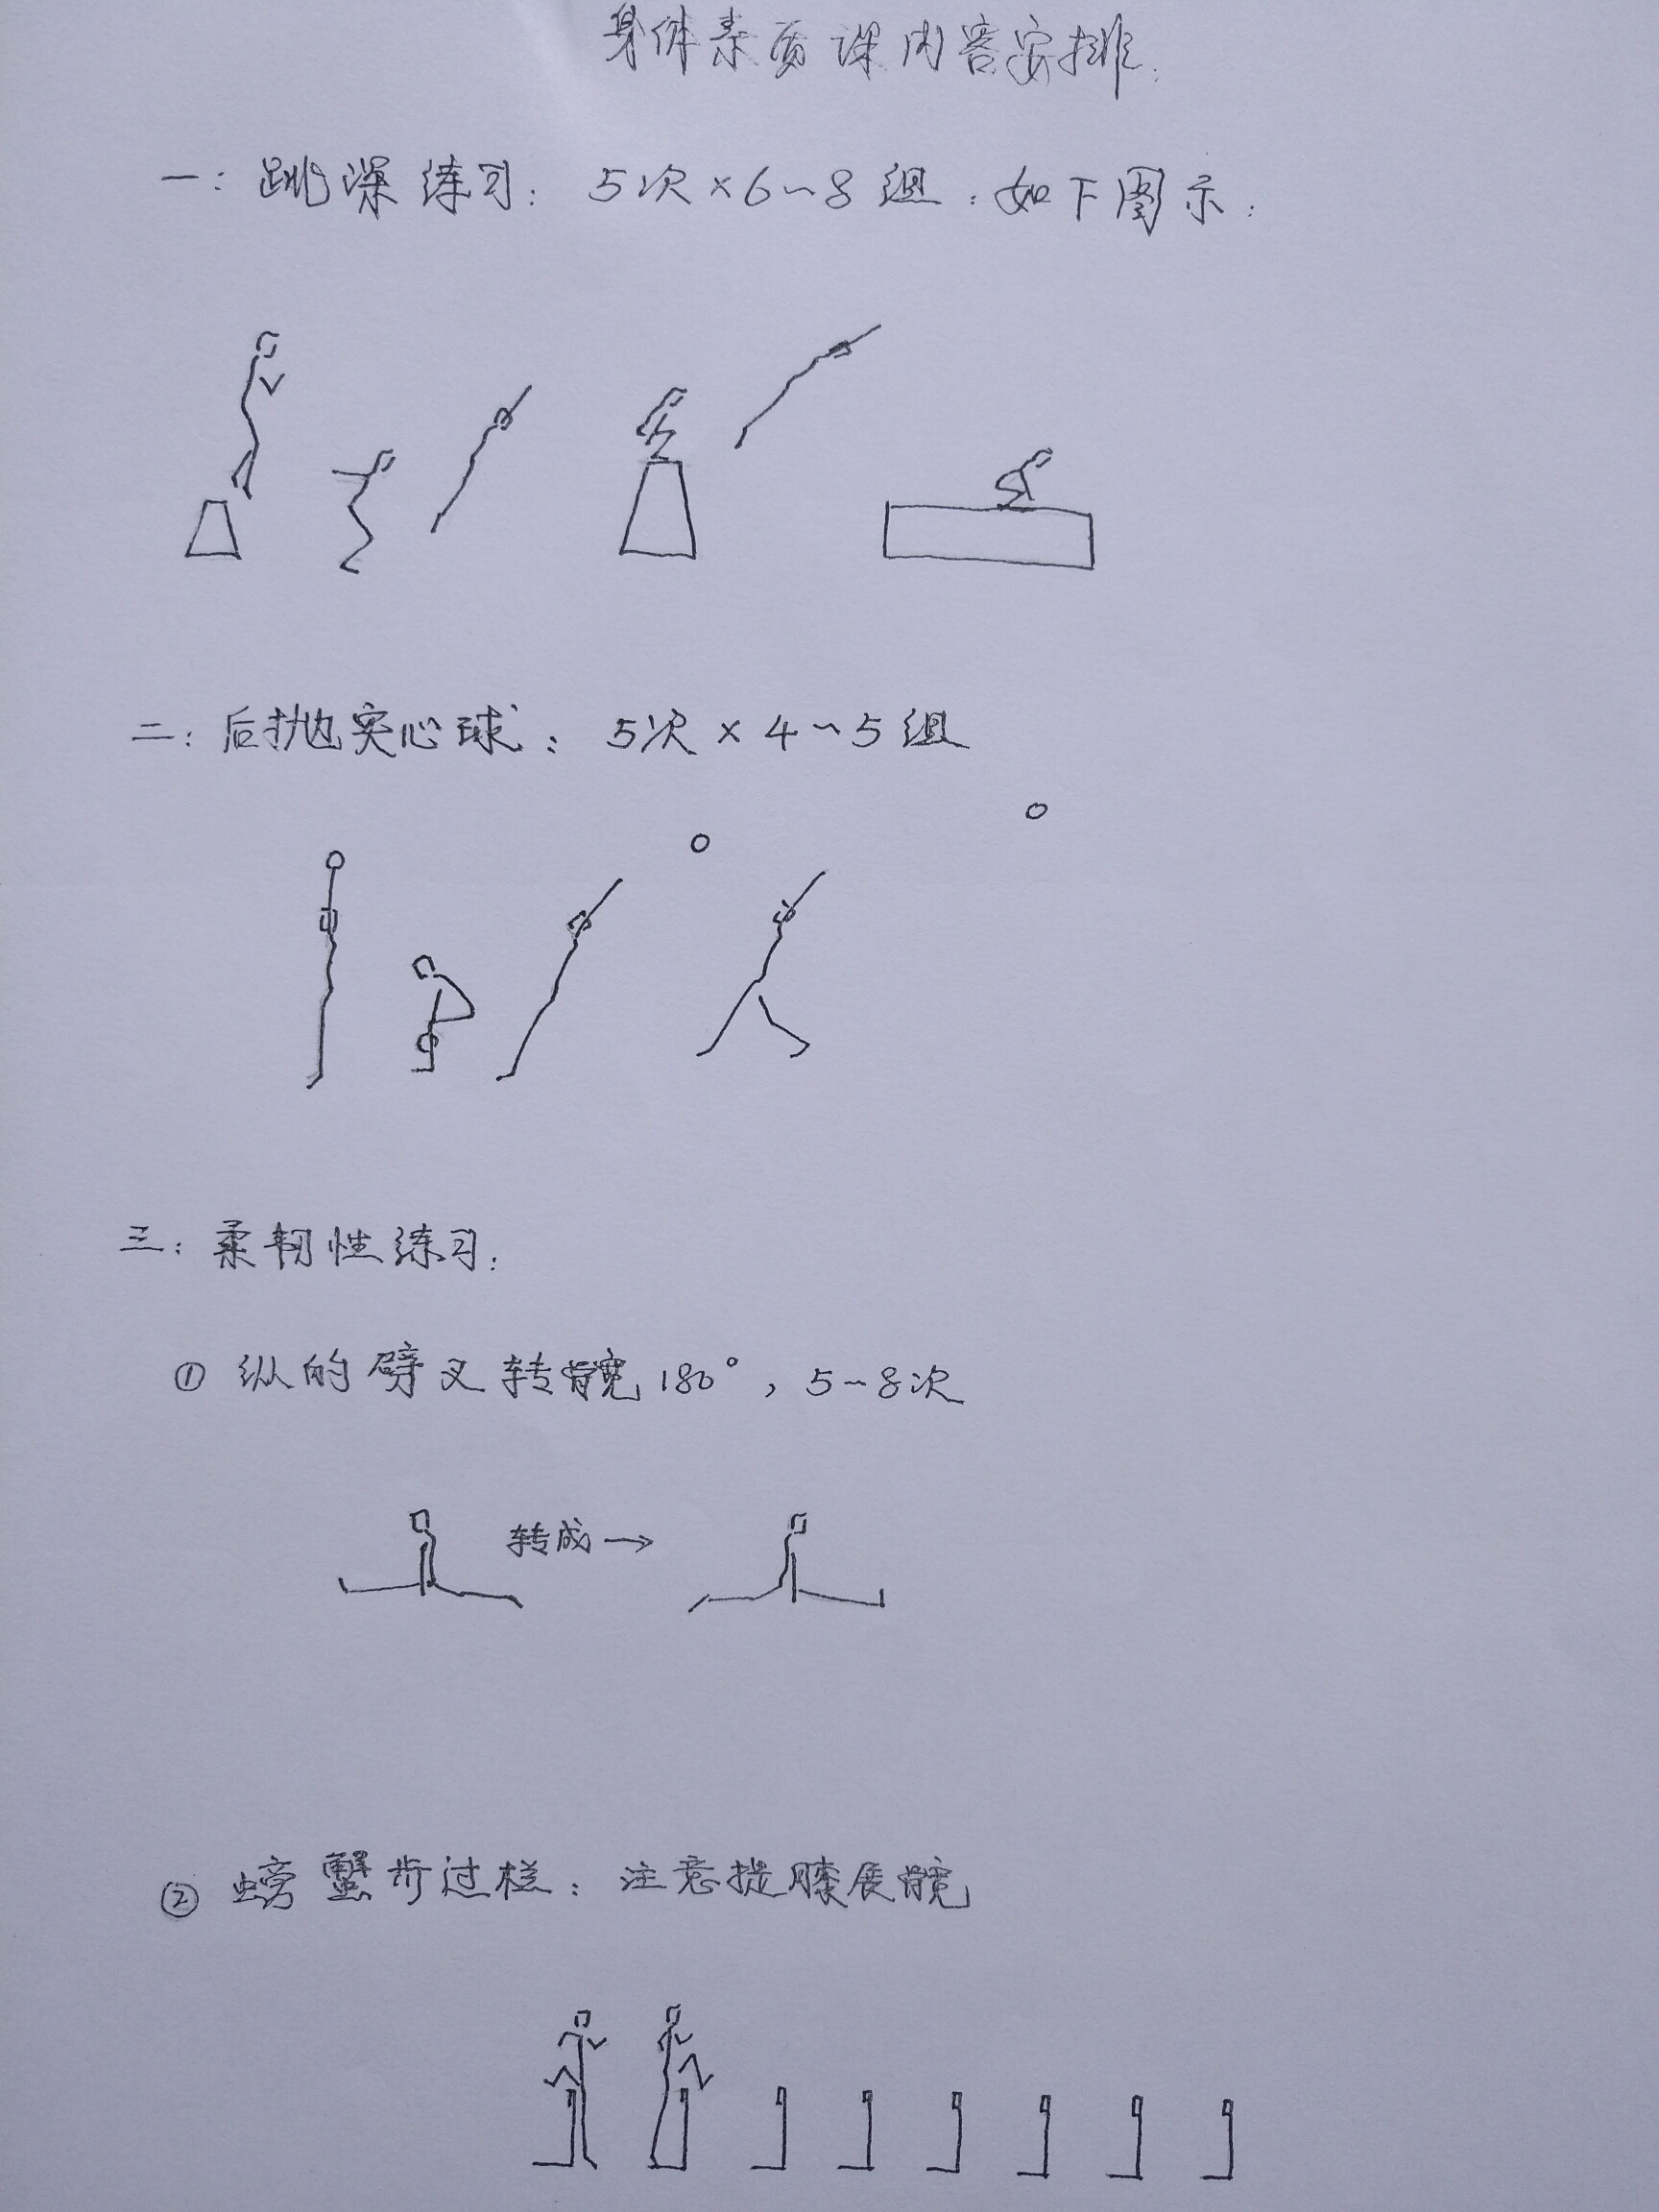 身体素质课内容安排.
一: 跳深练习: 5次×6~8组. 如下图示:
二: 后抛实心球: 5次×4~5组
三: 柔韧性练习:
① 纵的劈叉转髋180°, 5~8次
转成→
② 螃蟹步过栏: 注意提膝展髋